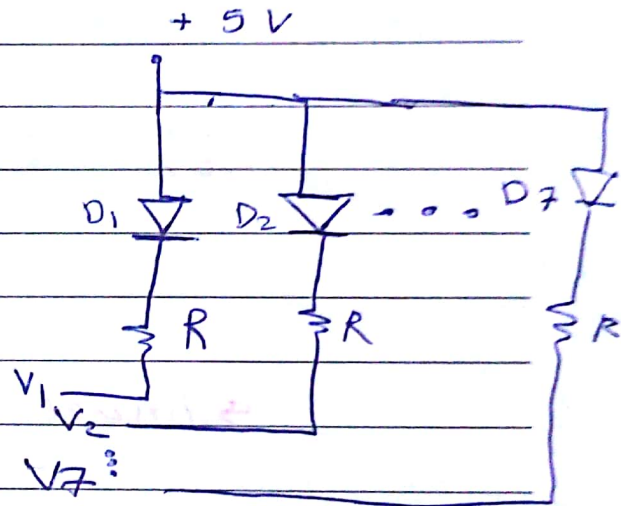 + 5 V
D1 D2 . . . D7
R R R
V1
V2
V7